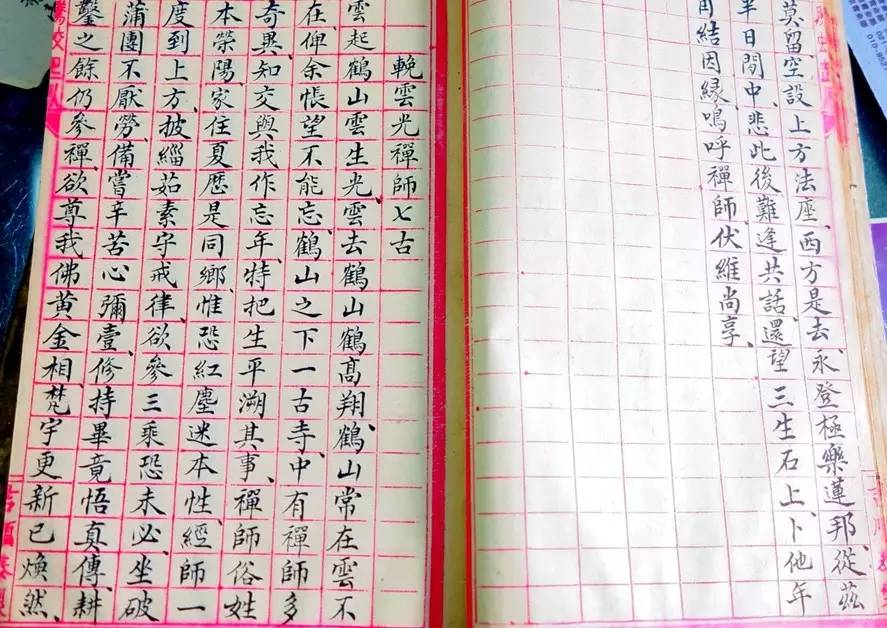 莫留空設上方法座、西方是去、永登極樂蓮邦、從茲
半日間中、悲此後難逢共話、還望三生石上、卜他年
結因緣、嗚呼禪師、伏維尚享、
輓雲光禪師七古
雲起鶴山雲生光、雲去鶴山鶴高翔、鶴山常在雲不
在俾余悵望不能忘、鶴山之下一古寺、中有禪師多
奇異、知交與我作忘年、特把生平溯其事、禪師俗姓
本榮陽、家住夏歷是同鄉、惟恐紅塵迷本性、經師一
度到上方、披緇茹素守戒律、欲參三乘恐未必、坐破
蒲團不厭勞、備嘗辛苦心彌壹、修持畢竟悟真傳、耕
鑿之餘仍參禪、欲尊我佛黃金相、梵宇更新已煥然、